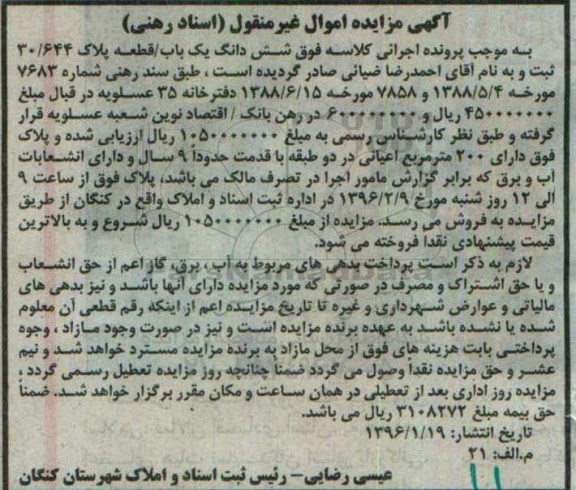 آگهی مزایده اموال غیرمنقول (اسناد رهنی)
به موجب پرونده اجرائی کلاسه فوق شش دانگ یک باب/قطعه پلاک ۳۰/۶۴۴
ثبت و به نام آقای احمدرضا ضیائی صادر گردیده است ، طبق سند رهنی شماره ۷۶۸۳
مورخه ۱۳۸۸/۵/۴ و ۷۸۵۸ مورخه ۱۳۸۸/۶/۱۵ دفترخانه ۳۵ عسلویه در قبال مبلغ
۴۵۰۰۰۰۰۰۰ ریال و ۶۰۰۰۰۰۰۰۰ در رهن بانک / اقتصاد نوین شعبه عسلویه قرار
گرفته و طبق نظر کارشناس رسمی به مبلغ ۱۰۵۰۰۰۰۰۰۰ ریال ارزیابی شده و پلاک
فوق دارای ۲۰۰ مترمربع اعیانی در دو طبقه با قدمت حدوداً ۹ سال و دارای انشعابات
آب و برق که برابر گزارش مامور اجرا در تصرف مالک می باشد، پلاک فوق از ساعت ۹
الی ۱۲ روز شنبه مورخ ۱۳۹۶/۲/۹ در اداره ثبت اسناد و املاک واقع در کنگان از طریق
مزایده به فروش می رسد. مزایده از مبلغ ۱۰۵۰۰۰۰۰۰۰ ریال شروع و به بالاترین
قیمت پیشنهادی نقدا فروخته می شود.
لازم به ذکر است پرداخت بدهی های مربوط به آب ، برق، گاز اعم از حق انشعاب
و یا حق اشتراک و مصرف در صورتی که مورد مزایده دارای آنها باشد و نیز بدهی های
مالیاتی و عوارض شهرداری و غیره تا تاریخ مزایده اعم از اینکه رقم قطعی آن معلوم
شده یا نشده باشد به عهده برنده مزایده است و نیز در صورت وجود مازاد ، وجوه
پرداختی بابت هزینه های فوق از محل مازاد به برنده مزایده مسترد خواهد شد و نیم
عشر و حق مزایده نقدا وصول می گردد ضمناً چنانچه روز مزایده تعطیل رسمی گردد ،
مزایده روز اداری بعد از تعطیلی در همان ساعت و مکان مقرر برگزار خواهد شد. ضمناً
حق بیمه مبلغ ۳۱۰۸۲۷۲ ریال می باشد.
تاریخ انتشار: ۱۳۹۶/۱/۱۹
م.الف: ۲۱
عیسی رضایی- رئیس ثبت اسناد و املاک شهرستان کنگان